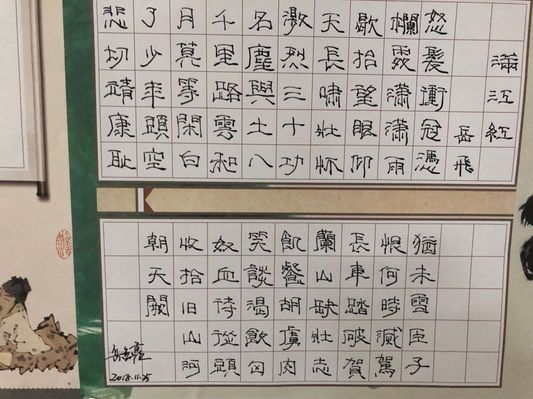 滿江紅
岳飛
怒髮衝冠憑
欄處瀟瀟雨
歇抬望眼仰
天長嘯壯怀
激烈三十功
名塵與土八
千里路雲和
月莫等閑白
了少年頭空
悲切靖康恥
猶未雪臣子
恨何時滅駕
長車踏破賀
蘭山缺壯志
飢餐胡虜肉
笑談渴飲匈
奴血待從頭
收拾旧山河
朝天闕
2018.11.25